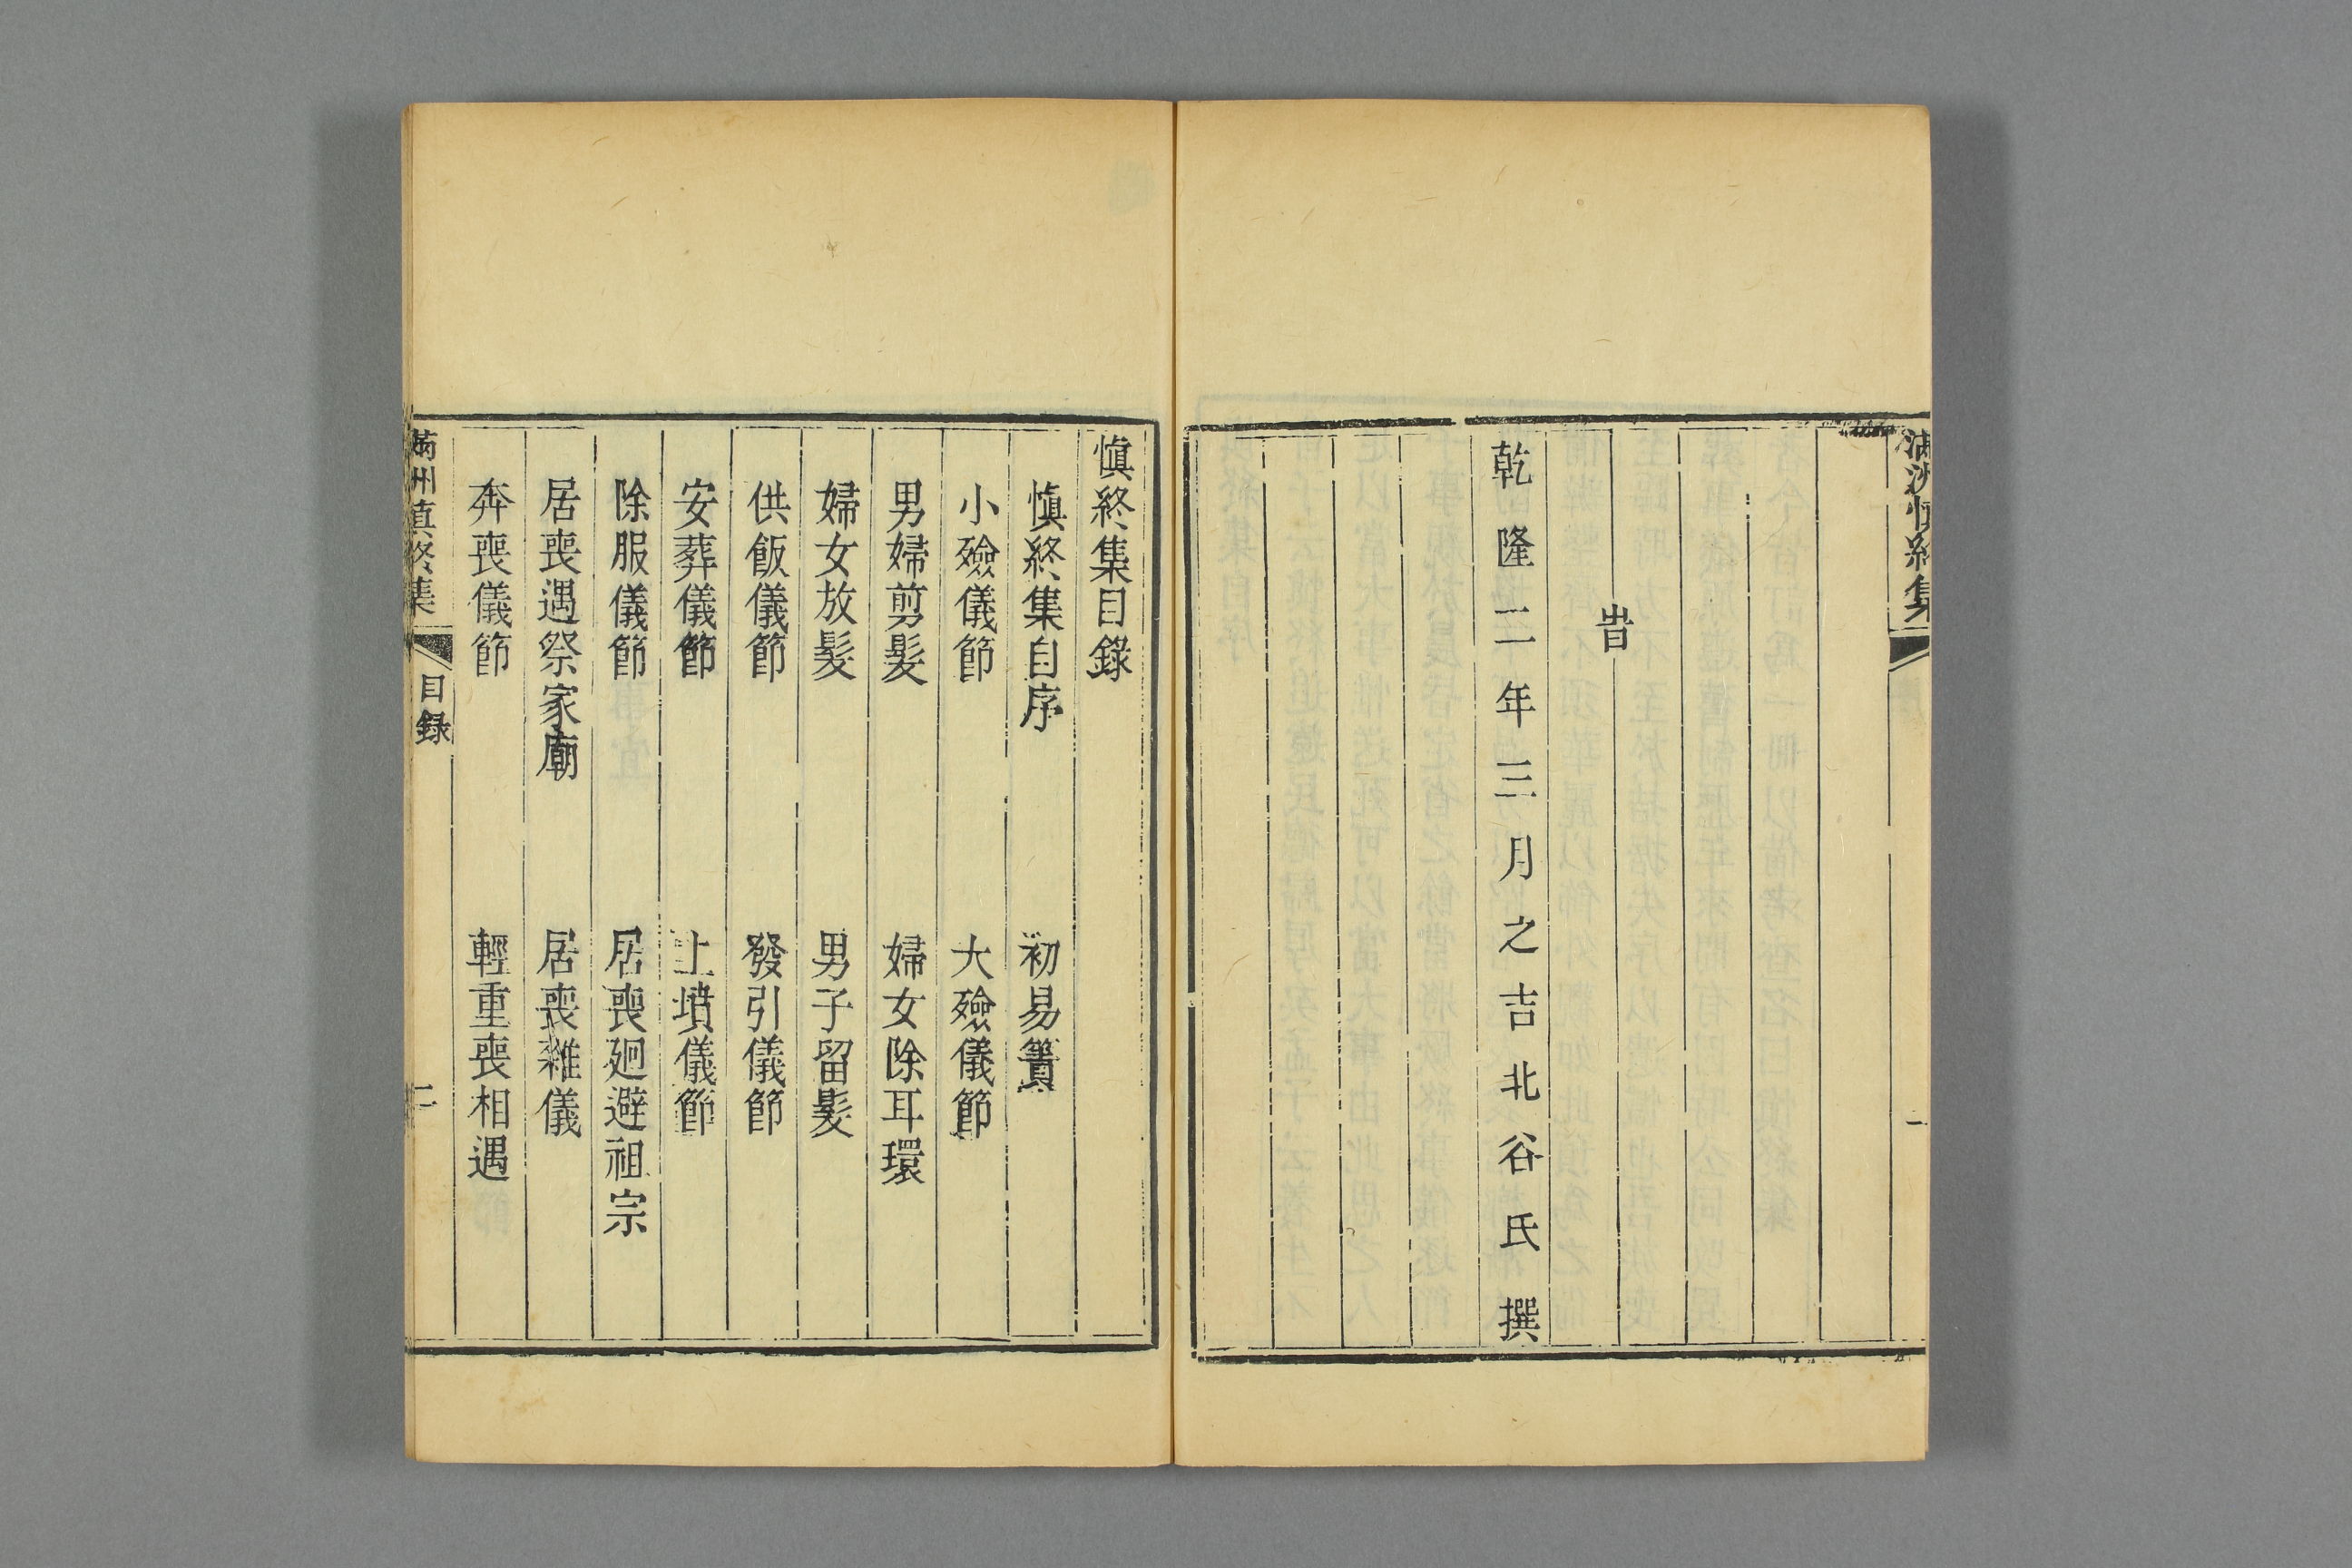 滿洲愼終集
旹
乾隆二年三月之吉北谷氏撰
愼終集目錄
愼終集自序 初易簀
小殮儀節 大殮儀節
男婦剪髮 婦女除耳環
婦女放髮 男子留髮
供飯儀節 發引儀節
安葬儀節 上墳儀節
除服儀節 居喪廻避祖宗
居喪遇祭家廟 居喪雜儀
奔喪儀節 輕重喪相遇
滿州愼終集 目録